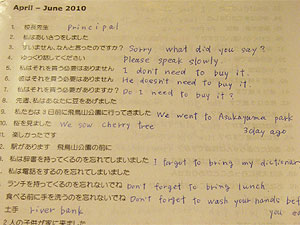 April – June 2010
1. 校長先生 Principal
2. 私はあいさつをしました
3. すいません、なんと言ったのですか? Sorry what did you say?
4. ゆっくり話してください Please speak slowly.
5. 私はそれを買う必要はありません I don't need to buy it.
6. 彼はそれを買う必要はありません He doesn't need to buy it.
7. 私はそれを買う必要がありますか? Do I need to buy it?
8. 先週、私はあなたに豆をあげました
9. 私たちは3日前飛鳥山公園に行ってきました We went to Asukayama park
3day ago
10. 桜を見ました We sow cherry tree
11. 楽しかったです
12. 駅があります 飛鳥山公園の前に
私は辞書を持ってくるのを忘れてしまいました I forgot to bring my dictionar
私は電話をするのを忘れてしまいました
ランチを持ってくるのを忘れないでね Don't forget to bring lunch
食べる前に手を洗うのを忘れないでね Don't forget to wash your hands bef
you ea
土手 river bank
2人の子供が家に来ました